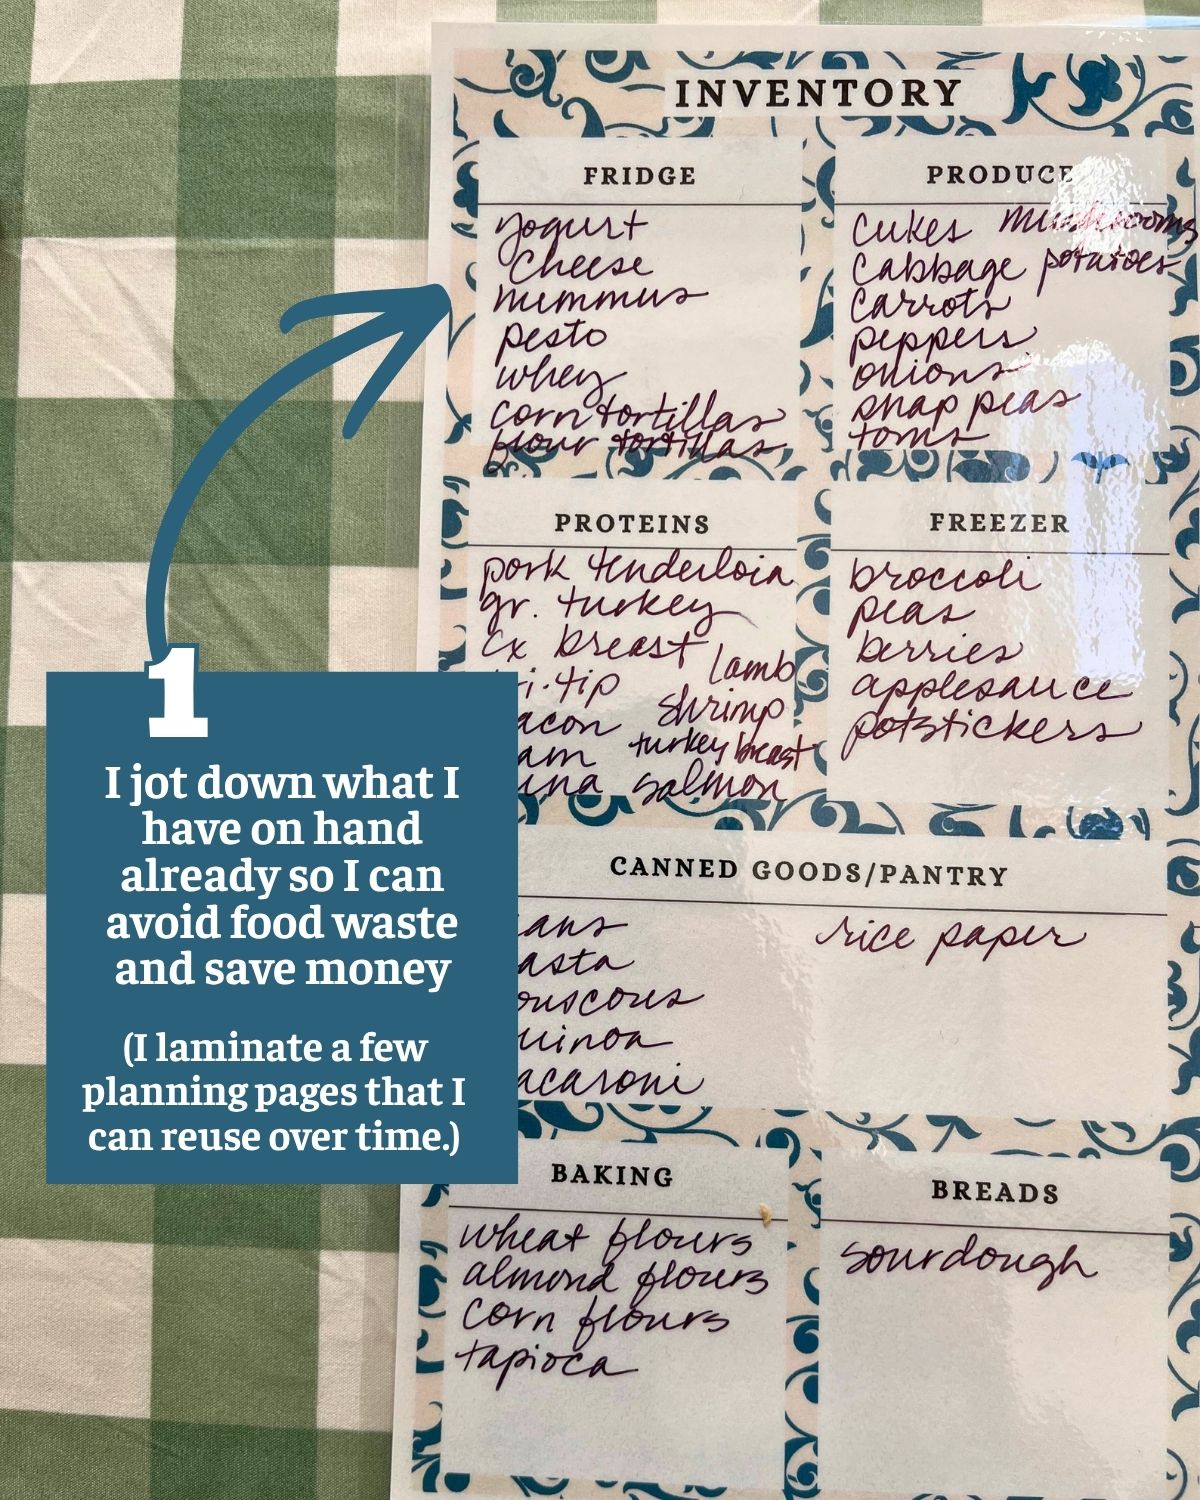 INVENTORY
FRIDGE
yogurt
cheese
hummus
pesto
whey
corn tortillas
flour tortillas
PRODUCE
cukes mushrooms
cabbage potatoes
carrots
peppers
onions
snap peas
toms
PROTEINS
pork tenderloin
gr. turkey
cx breast
lamb
i-tip
shrimp
acon
turkey breast
am
una salmon
FREEZER
broccoli
peas
berries
applesauce
potstickers
1
I jot down what I
have on hand
already so I can
avoid food waste
and save money
(I laminate a few
planning pages that I
can reuse over time.)
CANNED GOODS/PANTRY
ans
asta
ouscous
uinoa
acaroni
rice paper
BAKING
wheat flours
almond flours
corn flours
tapioca
BREADS
sourdough